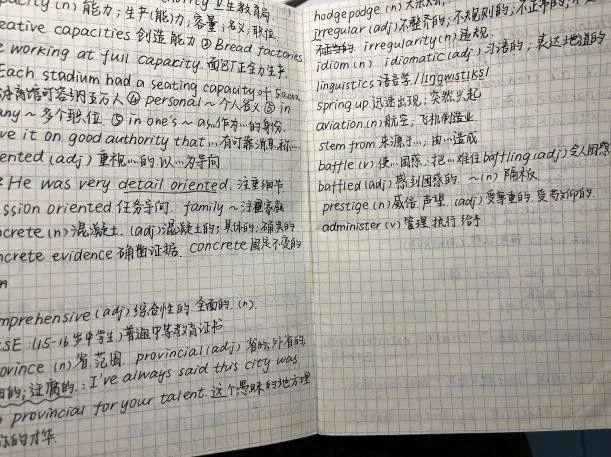 pacity (n) 能力;生产(能)力;容量;名义,职位
eative capacities 创造能力 ② Bread factories
e working at full capacity. 面包厂正全力生产.
Each stadium had a seating capacity of 50,000
体育馆可容纳五万人 ④ personal ~ 个人名义 ⑤ in
any ~ 多个职位. ⑤ in one's ~ as.. 作为…的身份.
ve it on good authority that… 有可靠消息称…
ented (adj) 重视…的. 以…为导向
He was very detail oriented. 注重细节
ssion oriented 任务导向. family ~ 注重家庭
ncrete (n) 混凝土. (adj) 混凝土的;具体的;确实的
ncrete evidence 确凿证据. concrete
mprehensive (adj) 综合性的. 全面的. (n).
SE: (15-16岁中学生) 普通中等教育证书
ovince (n) 省. 范围. provincial (adj) 省的;外省的,
的;迂腐的.: I've always said this city was
provincial for your talent. 这个愚昧的地方埋
你的才华.
hodgepodge (n)
irregular (adj) 不整齐的;不规则的;不正常的;
irregularity (n) 违规.
idiom (n) idiomatic (adj) 习语的;表达地道的
linguistics 语言学 /lingwistiks/
spring up 迅速出现;突然兴起
aviation (n) 航空,飞机制造业
stem from 来源于…;由…造成
baffle (v) 使…困惑. 把…难住 baffling (adj) 令人困惑
baffled (adj) 感到困惑的. ~ (n) 隔板
prestige (n) 威信. 声望. (adj) 受尊重的. 受敬仰的.
administer (v) 管理. 执行. 给予